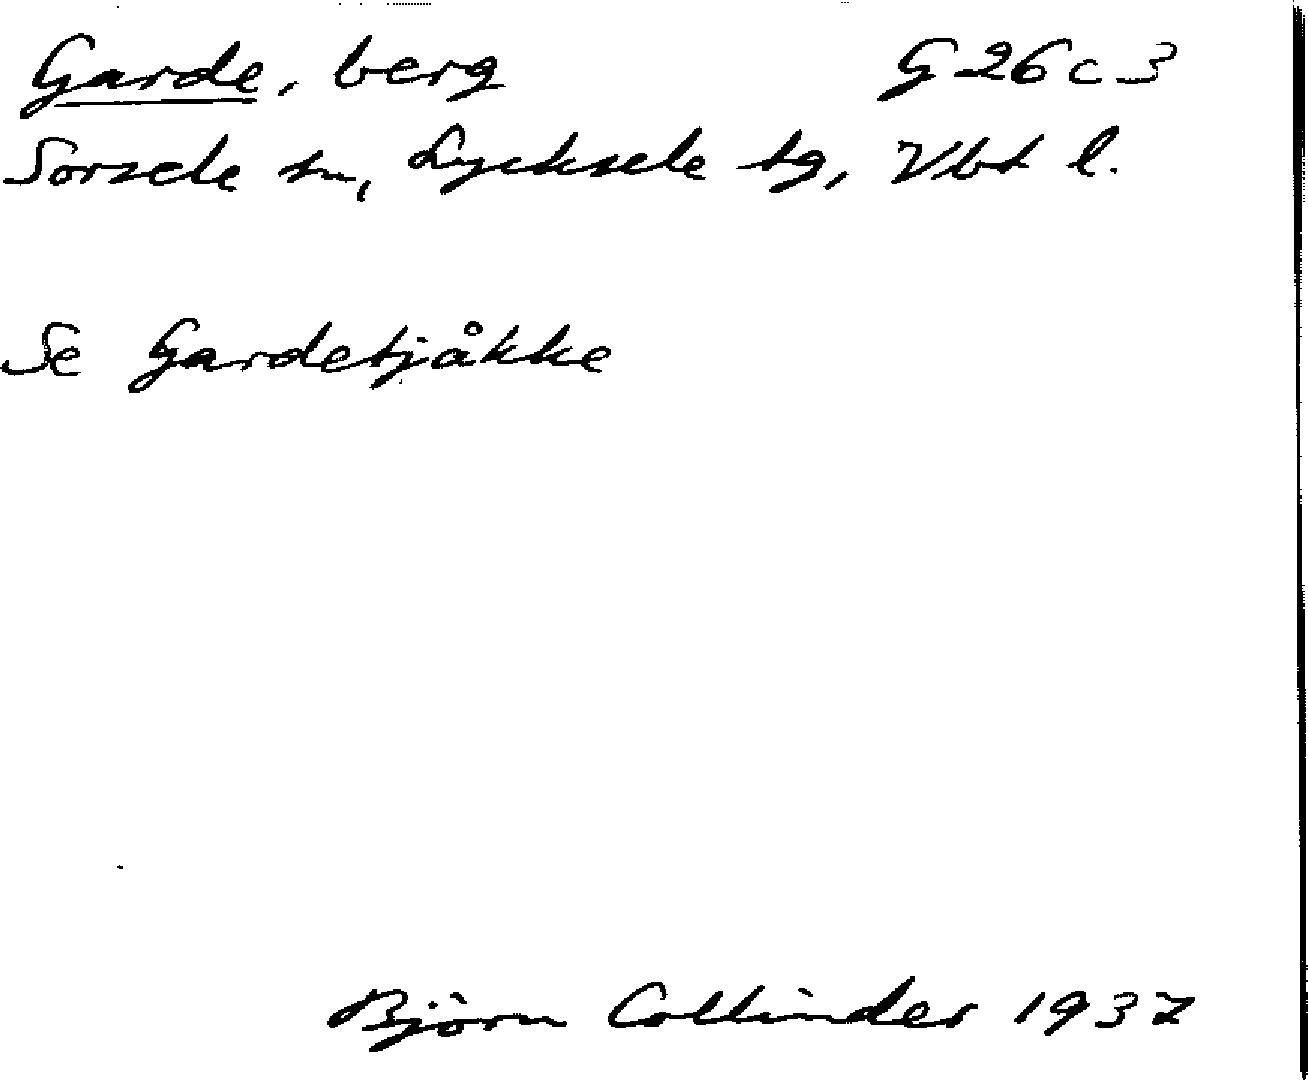 Garde, berg G 26 c 3
Sorsele sn, Lycksele tg, Vbt l.
Se Gardetjåkke
Björn Collinder 1937